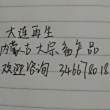 大连再生
内蒙古大宗畜产品
欢迎咨询 34667818